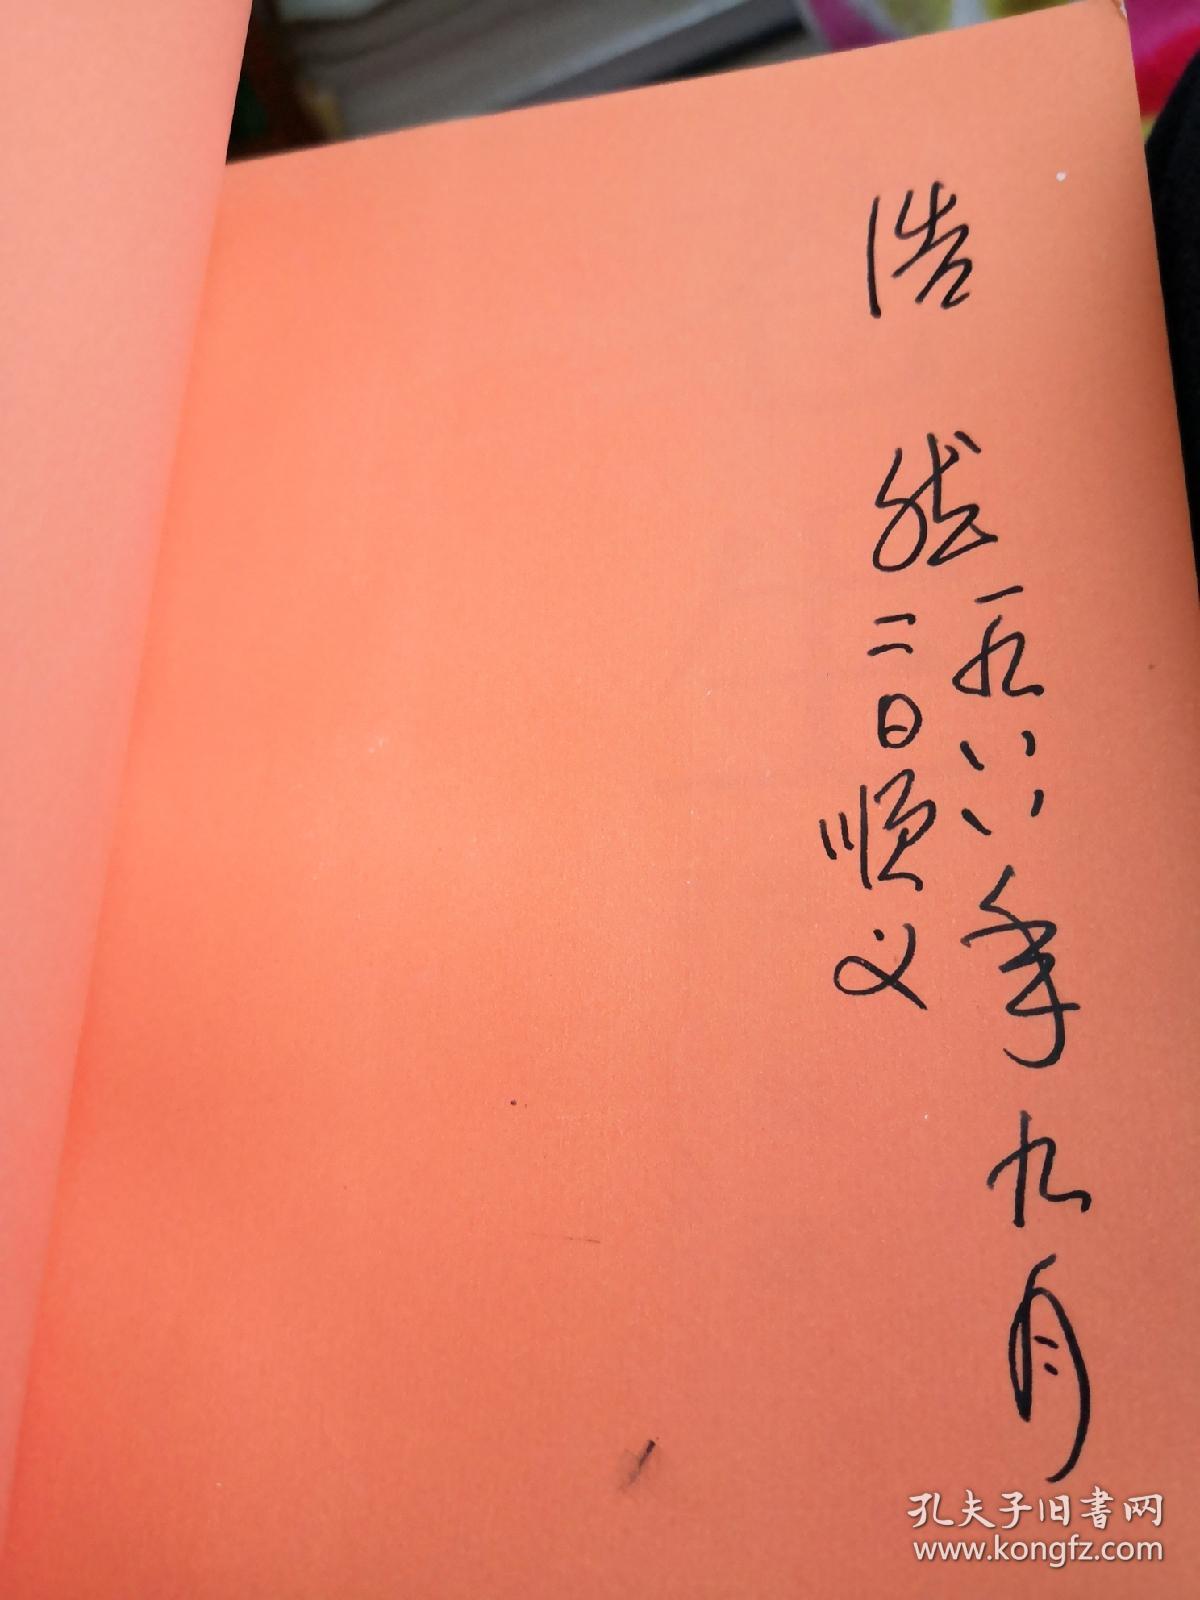 浩然
一九八八年九月
二日顺义
孔夫子旧书网
www.kongfz.com